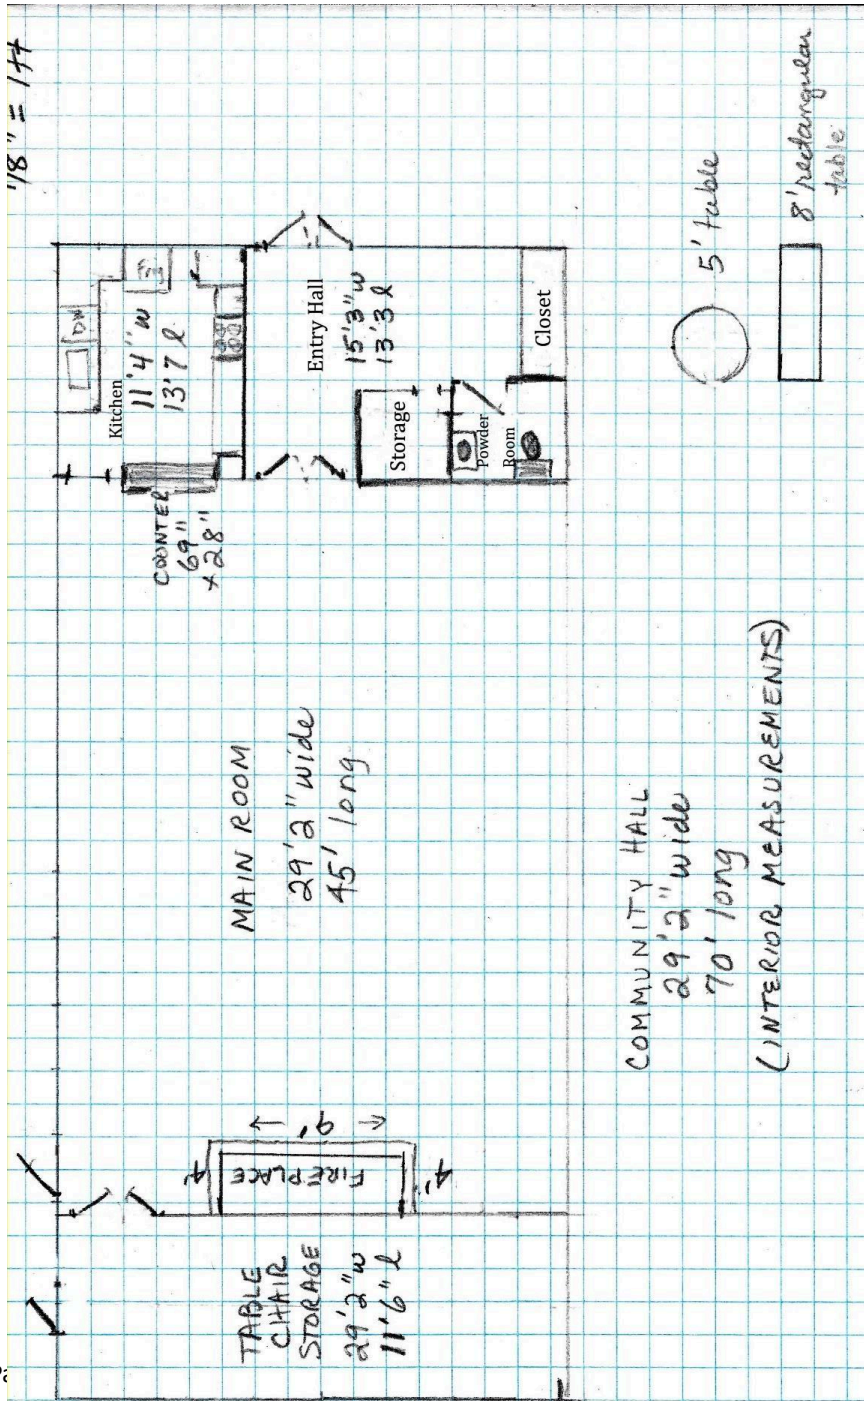 1/8" = 1ft
DW
Kitchen
11'4" w
13'7 l
Entry Hall
15'3" w
13'3 l
Storage
Powder
Room
Closet
COUNTER
69"
x 28"
5' table
8' rectangular
table
MAIN ROOM
29'2" wide
45' long
COMMUNITY HALL
29'2" wide
70' long
(INTERIOR MEASUREMENTS)
9'
4'
FIREPLACE
4'
TABLE
CHAIR
STORAGE
29'2" w
11'6" l